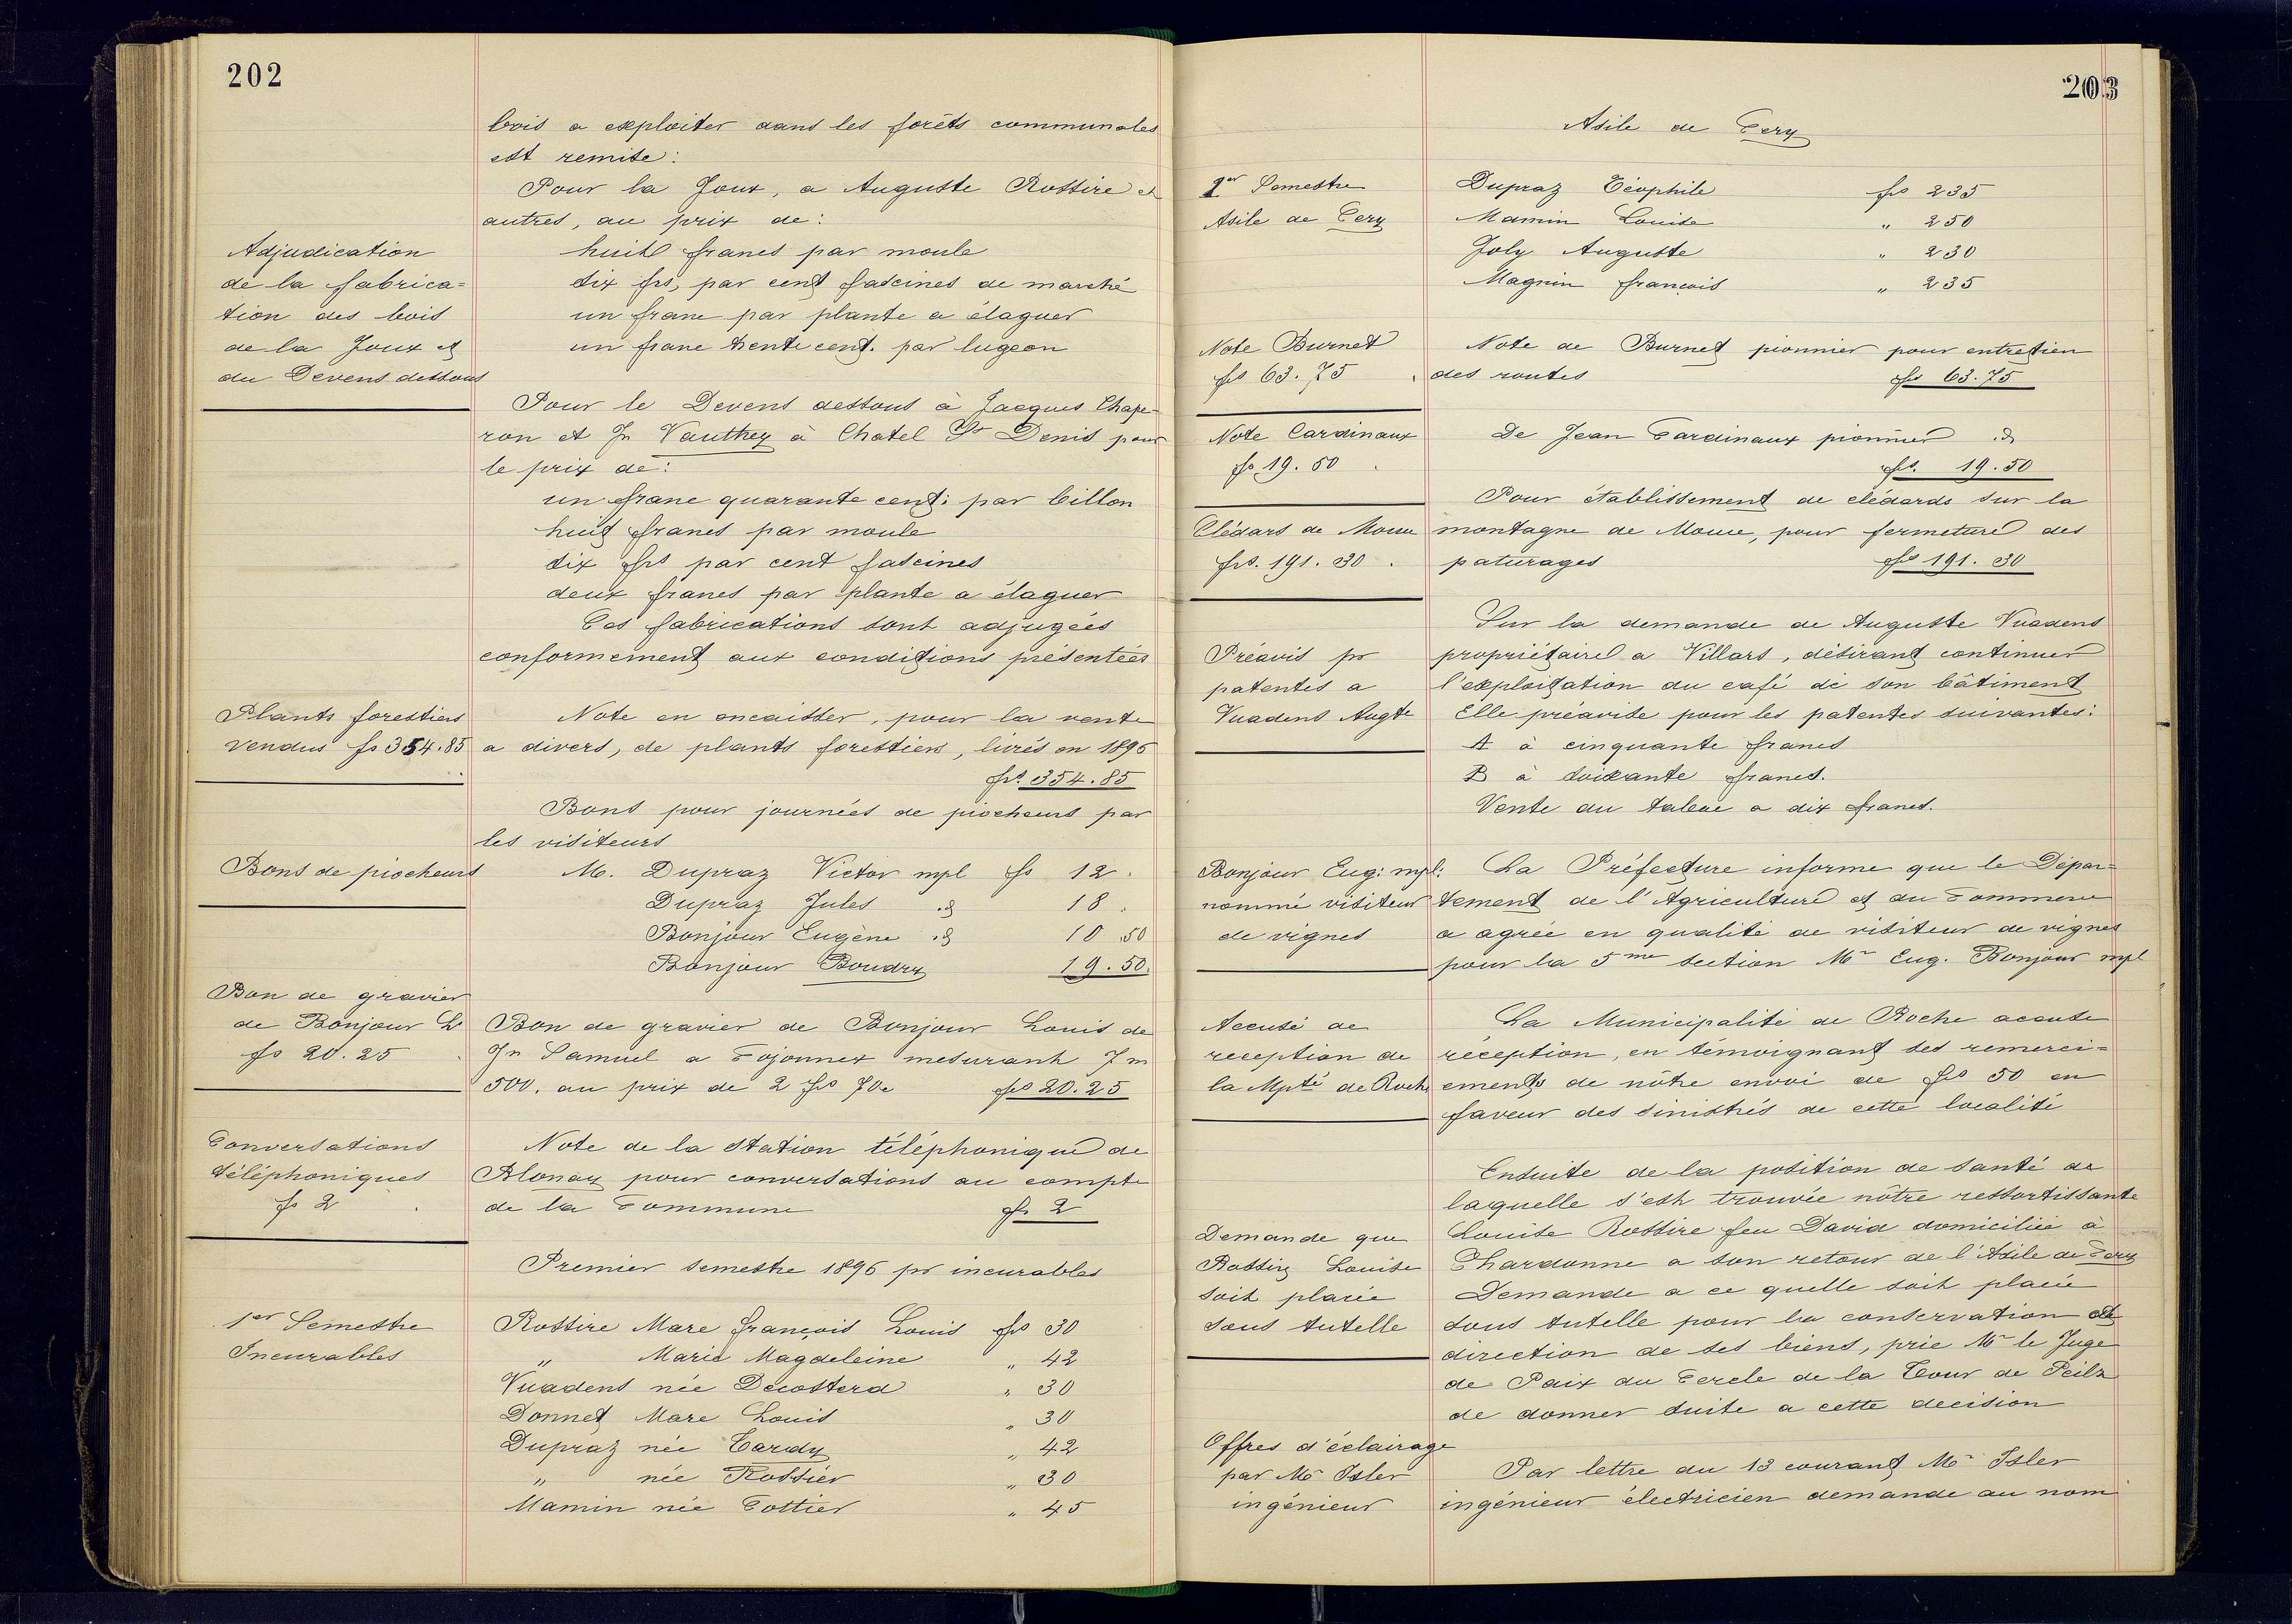 202
bois a exploiter dans les forêts communales
est remise:
Pour la Joux, a Auguste Rossire et
autres, au prix de:
Adjudication
de la fabrica=
tion des bois
de la Joux et
du Devens dessous
huit francs par moule
dix frs, par cent fascines de marché
un franc par plante a élaguer
un franc trente cent. par lugeon
Pour le Devens dessous à Jacques Chape-
ron et Jn Vauthey à Chatel St Denis pour
le prix de:
un franc quarante cent: par billon
huit francs par moule
dix frs par cent fascines
deux francs par plante a élaguer
Ces fabrications sont adjugées
conformement aux conditions présentées
Plants forestiers
vendus fs 354.85
Note en encaisser, pour la vente
a divers, de plants forestiers, livrés en 1896
frs. 354.85
Bons pour journées de piocheurs par
les visiteurs
Bons de piocheurs
M. Dupraz Victor mpl fs 12.
Dupraz Jules .d 18.
Bonjour Eugène .d 10.50
Bonjour Boudry 19.50.
Bon de gravier
de Bonjour L
fs 20.25
Bon de gravier de Bonjour Louis de
Jn Samuel a Cojonnex mesurant 7 m
500. au prix de 2 frs 70c frs 20.25
Conversations
téléphoniques
fs 2
Note de la station téléphonique de
Blonay pour conversations au compte
de la Commune fr 2
Premier semestre 1896 pr incurables
1er Semestre
Incurables
Rossire Marc françois Louis frs 30
" Marie Magdeleine " 42
Vuadens née Decosterd " 30
Donnet Marc Louis " 30
Dupraz née Tardy " 42
" née Rossier " 30
Mamin née Cottier " 45
203
Asile de Cery
1er Semestre
Asile de Cery
Dupraz Téophile frs 235
Mamin Louise " 250
Joly Auguste " 230
Magnin françois " 235
Note Burnet
frs 63.75
Note de Burnet pionnier pour entretien
des routes frs 63.75
Note Cardinaux
fs 19.50
De Jean Cardinaux pionnier .d
frs. 19.50
Clédars de Mouse
frs. 191.30
Pour établissement de clédards sur la
montagne de Mouse, pour fermeture des
paturages frs 191.30
Préavis pr
patentes a
Vuadens Augte
Sur la demande de Auguste Vuadens
propriétaire a Villars, désirant continuer
l'exploitation du café de son bâtiment
Elle préavise pour les patentes suivantes:
A à cinquante francs
B à soixante francs.
Vente du tabac a dix francs.
Bonjour Eug: mpl:
nommé visiteur
de vignes
La Préfecture informe que le Dépar=
tement de l'Agriculture et du Commerce
a agréé en qualité de visiteur de vignes
pour la 5me section Mr Eug. Bonjour mpl
Accusé de
reception de
la Mpté de Roche
La Municipalité de Roche accuse
réception, en témoignant ses remerci=
ements de nôtre envoi de frs 50 en
faveur des sinistrés de cette localité
Demande que
Rossire Louise
soit placée
sous tutelle
Ensuite de la position de santé de
laquelle s'est trouvée nôtre ressortissante
Louise Rossire feu David domiciliée à
Chardonne a son retour de l'Asile de Cery
Demande a ce quelle soit placée
sous tutelle pour la conservation et
direction de ses biens, prie Mr le Juge
de Paix du Cercle de la Tour de Peilz
de donner suite a cette decision
Offres d'éclairage
par Mr Isler
ingénieur
Par lettre du 13 courant Mr Isler
ingénieur électricien demande au nom